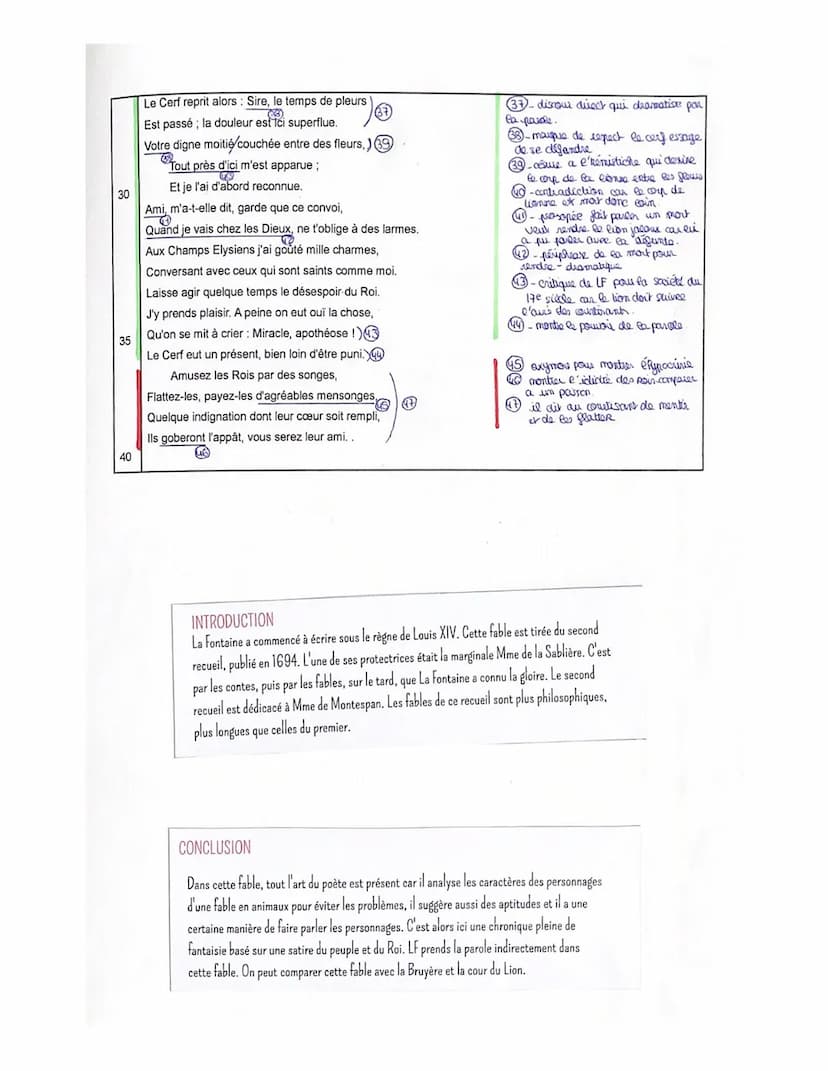 Le Cerf reprit alors : Sire, le temps de pleurs
37
38
Est passé ; la douleur est ici superflue.
Votre digne moitié/couchée entre des fleurs,
39
Tout près d'ici m'est apparue ;
40
30
Et je l'ai d'abord reconnue.
Ami, m'a-t-elle dit, garde que ce convoi,
41
Quand je vais chez les Dieux, ne t'oblige à des larmes.
42
Aux Champs Elysiens j'ai goûté mille charmes,
Conversant avec ceux qui sont saints comme moi.
Laisse agir quelque temps le désespoir du Roi.
J'y prends plaisir. A peine on eut ouï la chose,
35
Qu'on se mit à crier : Miracle, apothéose !
43
Le Cerf eut un présent, bien loin d'être puni.
44
Amusez les Rois par des songes,
Flattez-les, payez-les d'agréables mensonges,
45
47
Quelque indignation dont leur cœur soit rempli,
Ils goberont l'appât, vous serez leur ami. .
46
40
37 - discours direct qui dramatise par
la parole.
38 - marque de respect le cerf essaye
de se défendre
39 - césure a l'hémistiche qui
le corp de la lionne entre les fleurs
40 - contradiction car le corp de
lionne est mort donc loin
41 - prosopée fait parler un mort
veut rendre le lion jaloux car lui
a pu parler avec la défunte.
42 - périphrase de la mort pour
rendre - dramatique
43 - critique de LF pour la société du
17e siècle car le lion doit suivre
l'avis des courtisants.
44 - montre le pouvoir de la parole
45 oxymore pour montrer l'hypocrisie
46 montrer des rois comparer
a un poisson
47 il dit au courtisant de mentir
et de les flatter
INTRODUCTION
La Fontaine a commencé à écrire sous le règne de Louis XIV. Cette fable est tirée du second
recueil, publié en 1694. L'une de ses protectrices était la marginale Mme de la Sablière. C'est
par les contes, puis par les fables, sur le tard, que La Fontaine a connu la gloire. Le second
recueil est dédicacé à Mme de Montespan. Les fables de ce recueil sont plus philosophiques,
plus longues que celles du premier.
CONCLUSION
Dans cette fable, tout l'art du poète est présent car il analyse les caractères des personnages
d'une fable en animaux pour éviter les problèmes, il suggère aussi des aptitudes et il a une
certaine manière de faire parler les personnages. C'est alors ici une chronique pleine de
fantaisie basé sur une satire du peuple et du Roi. LF prends la parole indirectement dans
cette fable. On peut comparer cette fable avec la Bruyère et la cour du Lion.